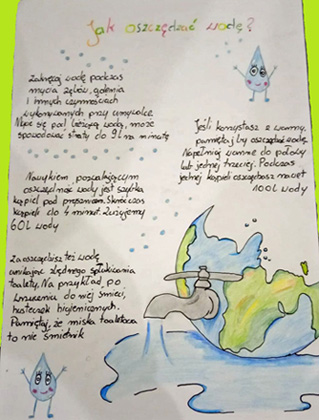 Jak oszczędzać wodę?
Zakręcaj wodę podczas
mycia zębów, golenia
i innych czynnościach
wykonywanych przy umywalce.
Mycie się pod bieżącą wodą, może
spowodować straty do 9l na minutę
Jeśli korzystasz z wanny,
pamiętaj by oszczędzać wodę.
Napełnij wannę do połowy
lub jednej trzeciej. Podczas
jednej kąpieli oszczędzasz nawet
100l wody
Nawykiem pozwalającym
oszczędność wody jest szybka
kąpiel pod prysznicem. Skróć czas
kąpieli do 4 minut. Zużyjemy
60l wody
Zaoszczędzisz też wodę
unikając zbędnego spłukiwania
toalety. Na przykład po
wrzuceniu do niej śmieci,
husteczek higienicznych.
Pamiętaj, że miska toaletowa
to nie śmietnik